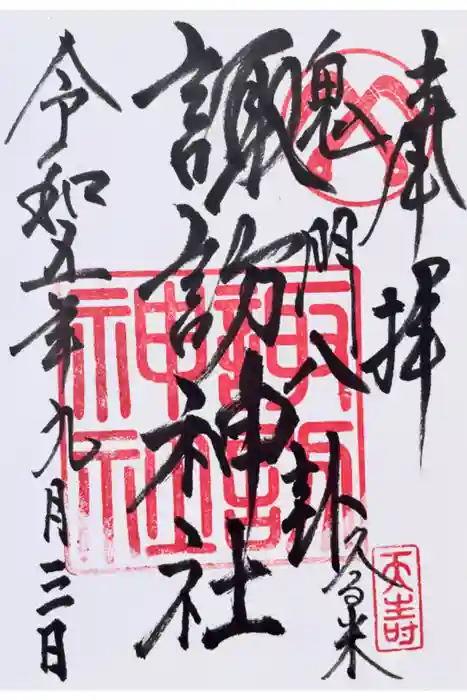 奉拝
鬼門八卦
久留米
諏訪神社
諏訪神社
令和五年九月三日